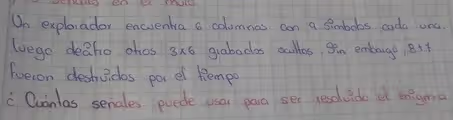 en el
Un explorador encuentra 6 columnas con 9 simbolos cada una.
luego otros 3x6 grabados ocultos. Sin embargo, 8+7
fueron destruidos por el tiempo
¿ Cuántas señales puede usar para ser resolvido el enigma